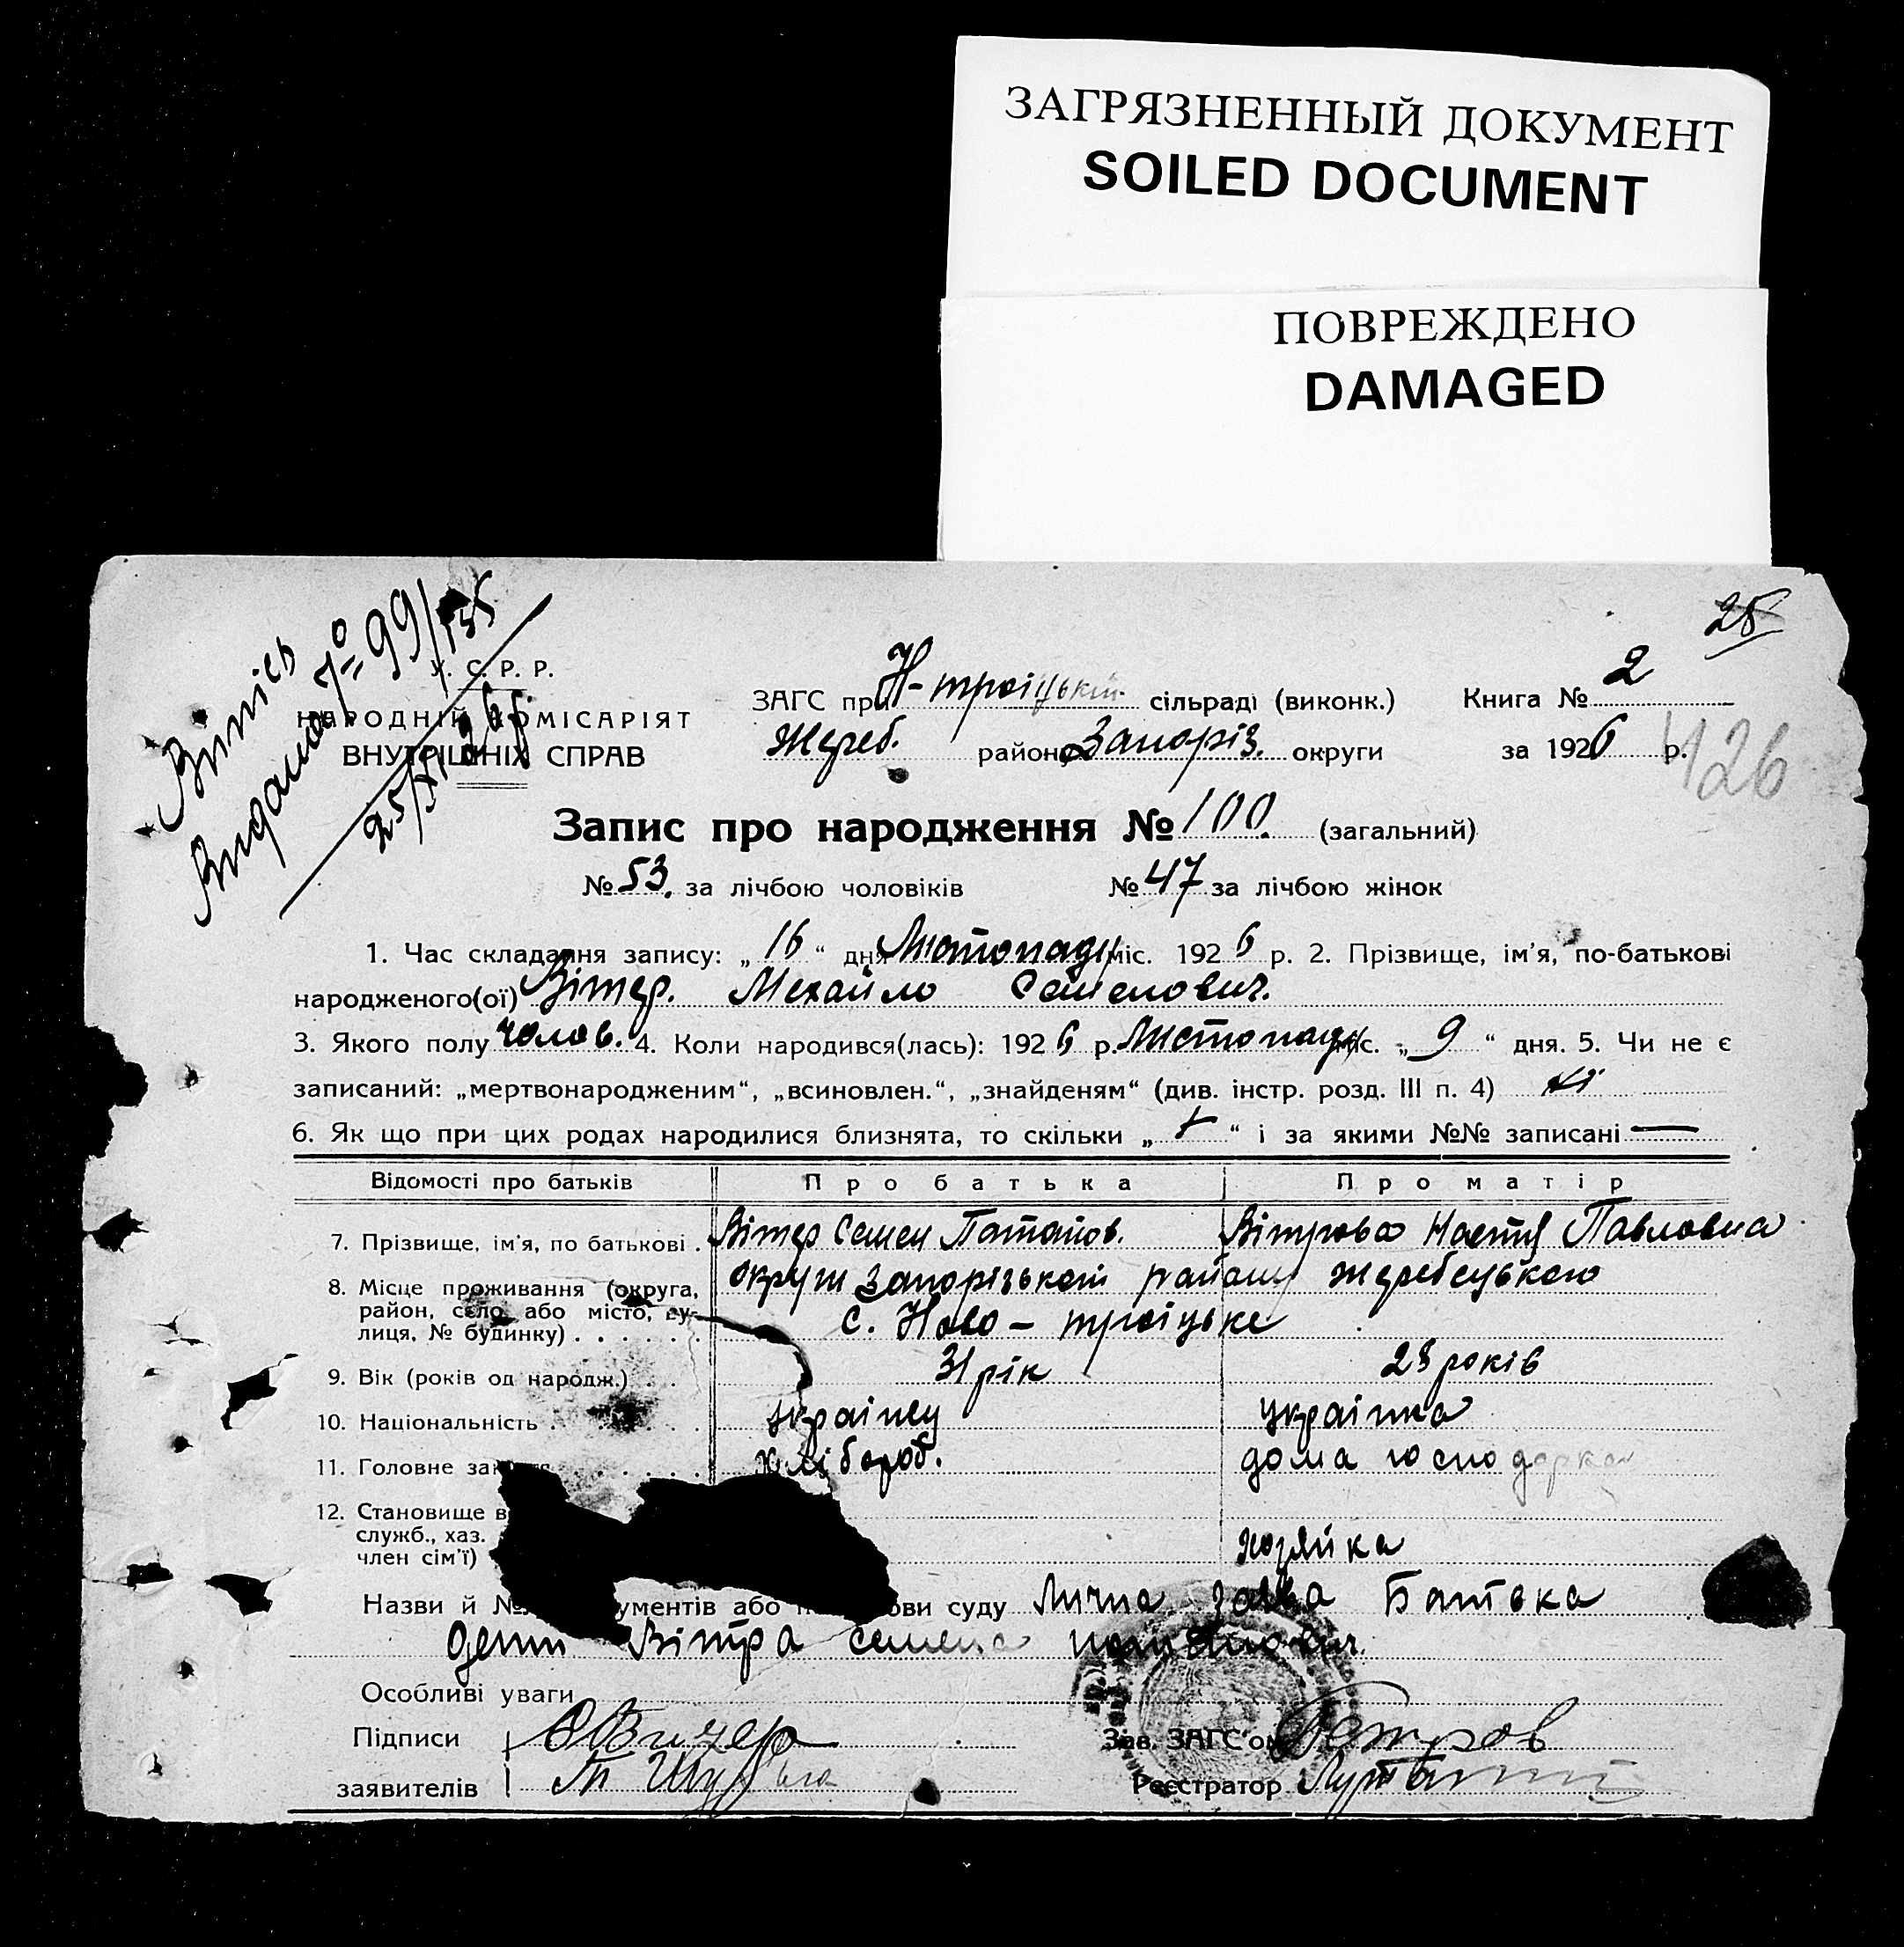 ЗАГРЯЗНЕННЫЙ ДОКУМЕНТ
SOILED DOCUMENT
ПОВРЕЖДЕНО
DAMAGED
25
Витяг
Видано № 99/135
25/XI 26р.
У. С. Р. Р.
НАРОДНІЙ КОМІСАРІЯТ
ВНУТРІШНІХ СПРАВ
ЗАГС при Н-троіцькій сільраді (виконк.) Книга № 2
Жереб. району Запоріз. округи за 1926 р.
126
Запис про народження № 100. (загальний)
№ 53. за лічбою чоловіків № 47 за лічбою жінок
1. Час складання запису: „16“ дня Листопаду міс. 1926 р. 2. Прізвище, ім'я, по-батькові
народженого(ої) Вітер. Михайло Семенович.
3. Якого полу чолов. 4. Коли народився(лась): 1926 р. Листопаду міс. „9“ дня. 5. Чи не є
записаний: „мертвонародженим“, „всиновлен.“, „знайденям“ (див. інстр. розд. III п. 4) ні
6. Як що при цих родах народилися близнята, то скільки „ “ і за якими №№ записані —
Відомості про батьків Про батька Про матір
7. Прізвище, ім'я, по батькові . Вітер Семен Потапов. Вітрова Настя Павловна
8. Місце проживання (округа, Округи Запорізькоі району Жеребецького
район, село або місто, ву-
лиця, № будинку) . . . . . . с. Ново-троіцьке
9. Вік (років од народж.) . . 31 рік 28 років
10. Національність . . . . . украінец украінка
11. Головне зан . . . . . хлібороб. дома господарка
12. Становище в
служб., хаз.
член сім'ї) хозяйка
Назви й № ументів або п ови суду Лична заява Батька
дети Вітра Семена Потаповича.
Особливі уваги
Підписи Зав. ЗАГС'ом Петров
заявителів Реєстратор